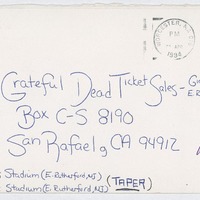 P.M
1994
Grateful Dead Ticket Sales - G
Box C-S 8190
San Rafael, CA 94912
Stadium (E. Rutherford, NJ)
Stadium (E. Rutherford, NJ) (TAPER)